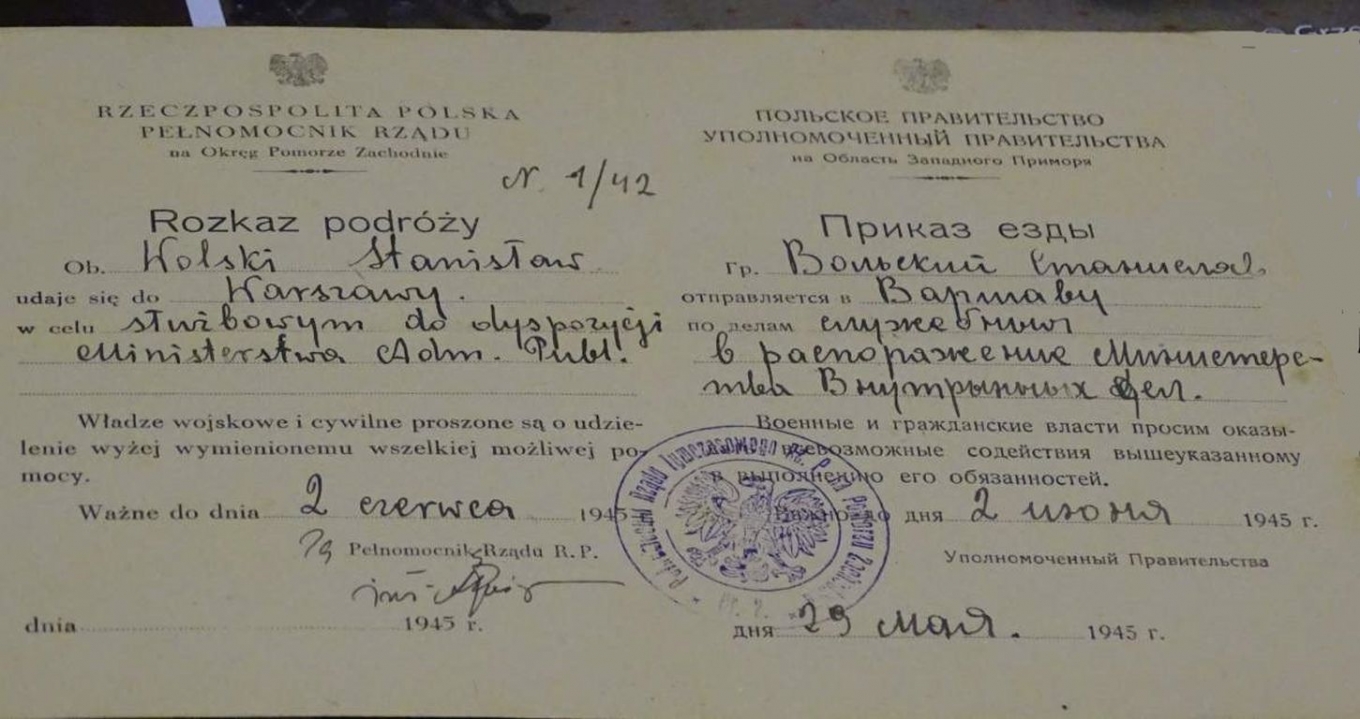 RZECZPOSPOLITA POLSKA
PEŁNOMOCNIK RZĄDU
na Okręg Pomorze Zachodnie
N. 1/42
Rozkaz podróży
Ob. Wolski Stanisław
udaje się do Warszawy.
w celu służbowym do dyspozycji
Ministerstwa Adm. Publ.
Władze wojskowe i cywilne proszone są o udzie-
lenie wyżej wymienionemu wszelkiej możliwej po-
mocy.
Ważne do dnia 2 czerwca 1945
Pełnomocnik Rządu R.P.
inż.
dnia 1945 r.
ПОЛЬСКОЕ ПРАВИТЕЛЬСТВО
УПОЛНОМОЧЕННЫЙ ПРАВИТЕЛЬСТВА
на Область Западного Приморя
Приказ езды
Гр. Вольский Станислав
отправляется в Варшаву
по делам служебным
в распоражение Министерс-
тва Внутрынных Дел.
Военные и гражданские власти просим оказы-
всевозможные содействия вышеуказанному
в выполнению его обязанностей.
Важно до дня 2 июня 1945 г.
Уполномоченный Правительства
дня 29 мая. 1945 г.
Rządu Tymczasowego